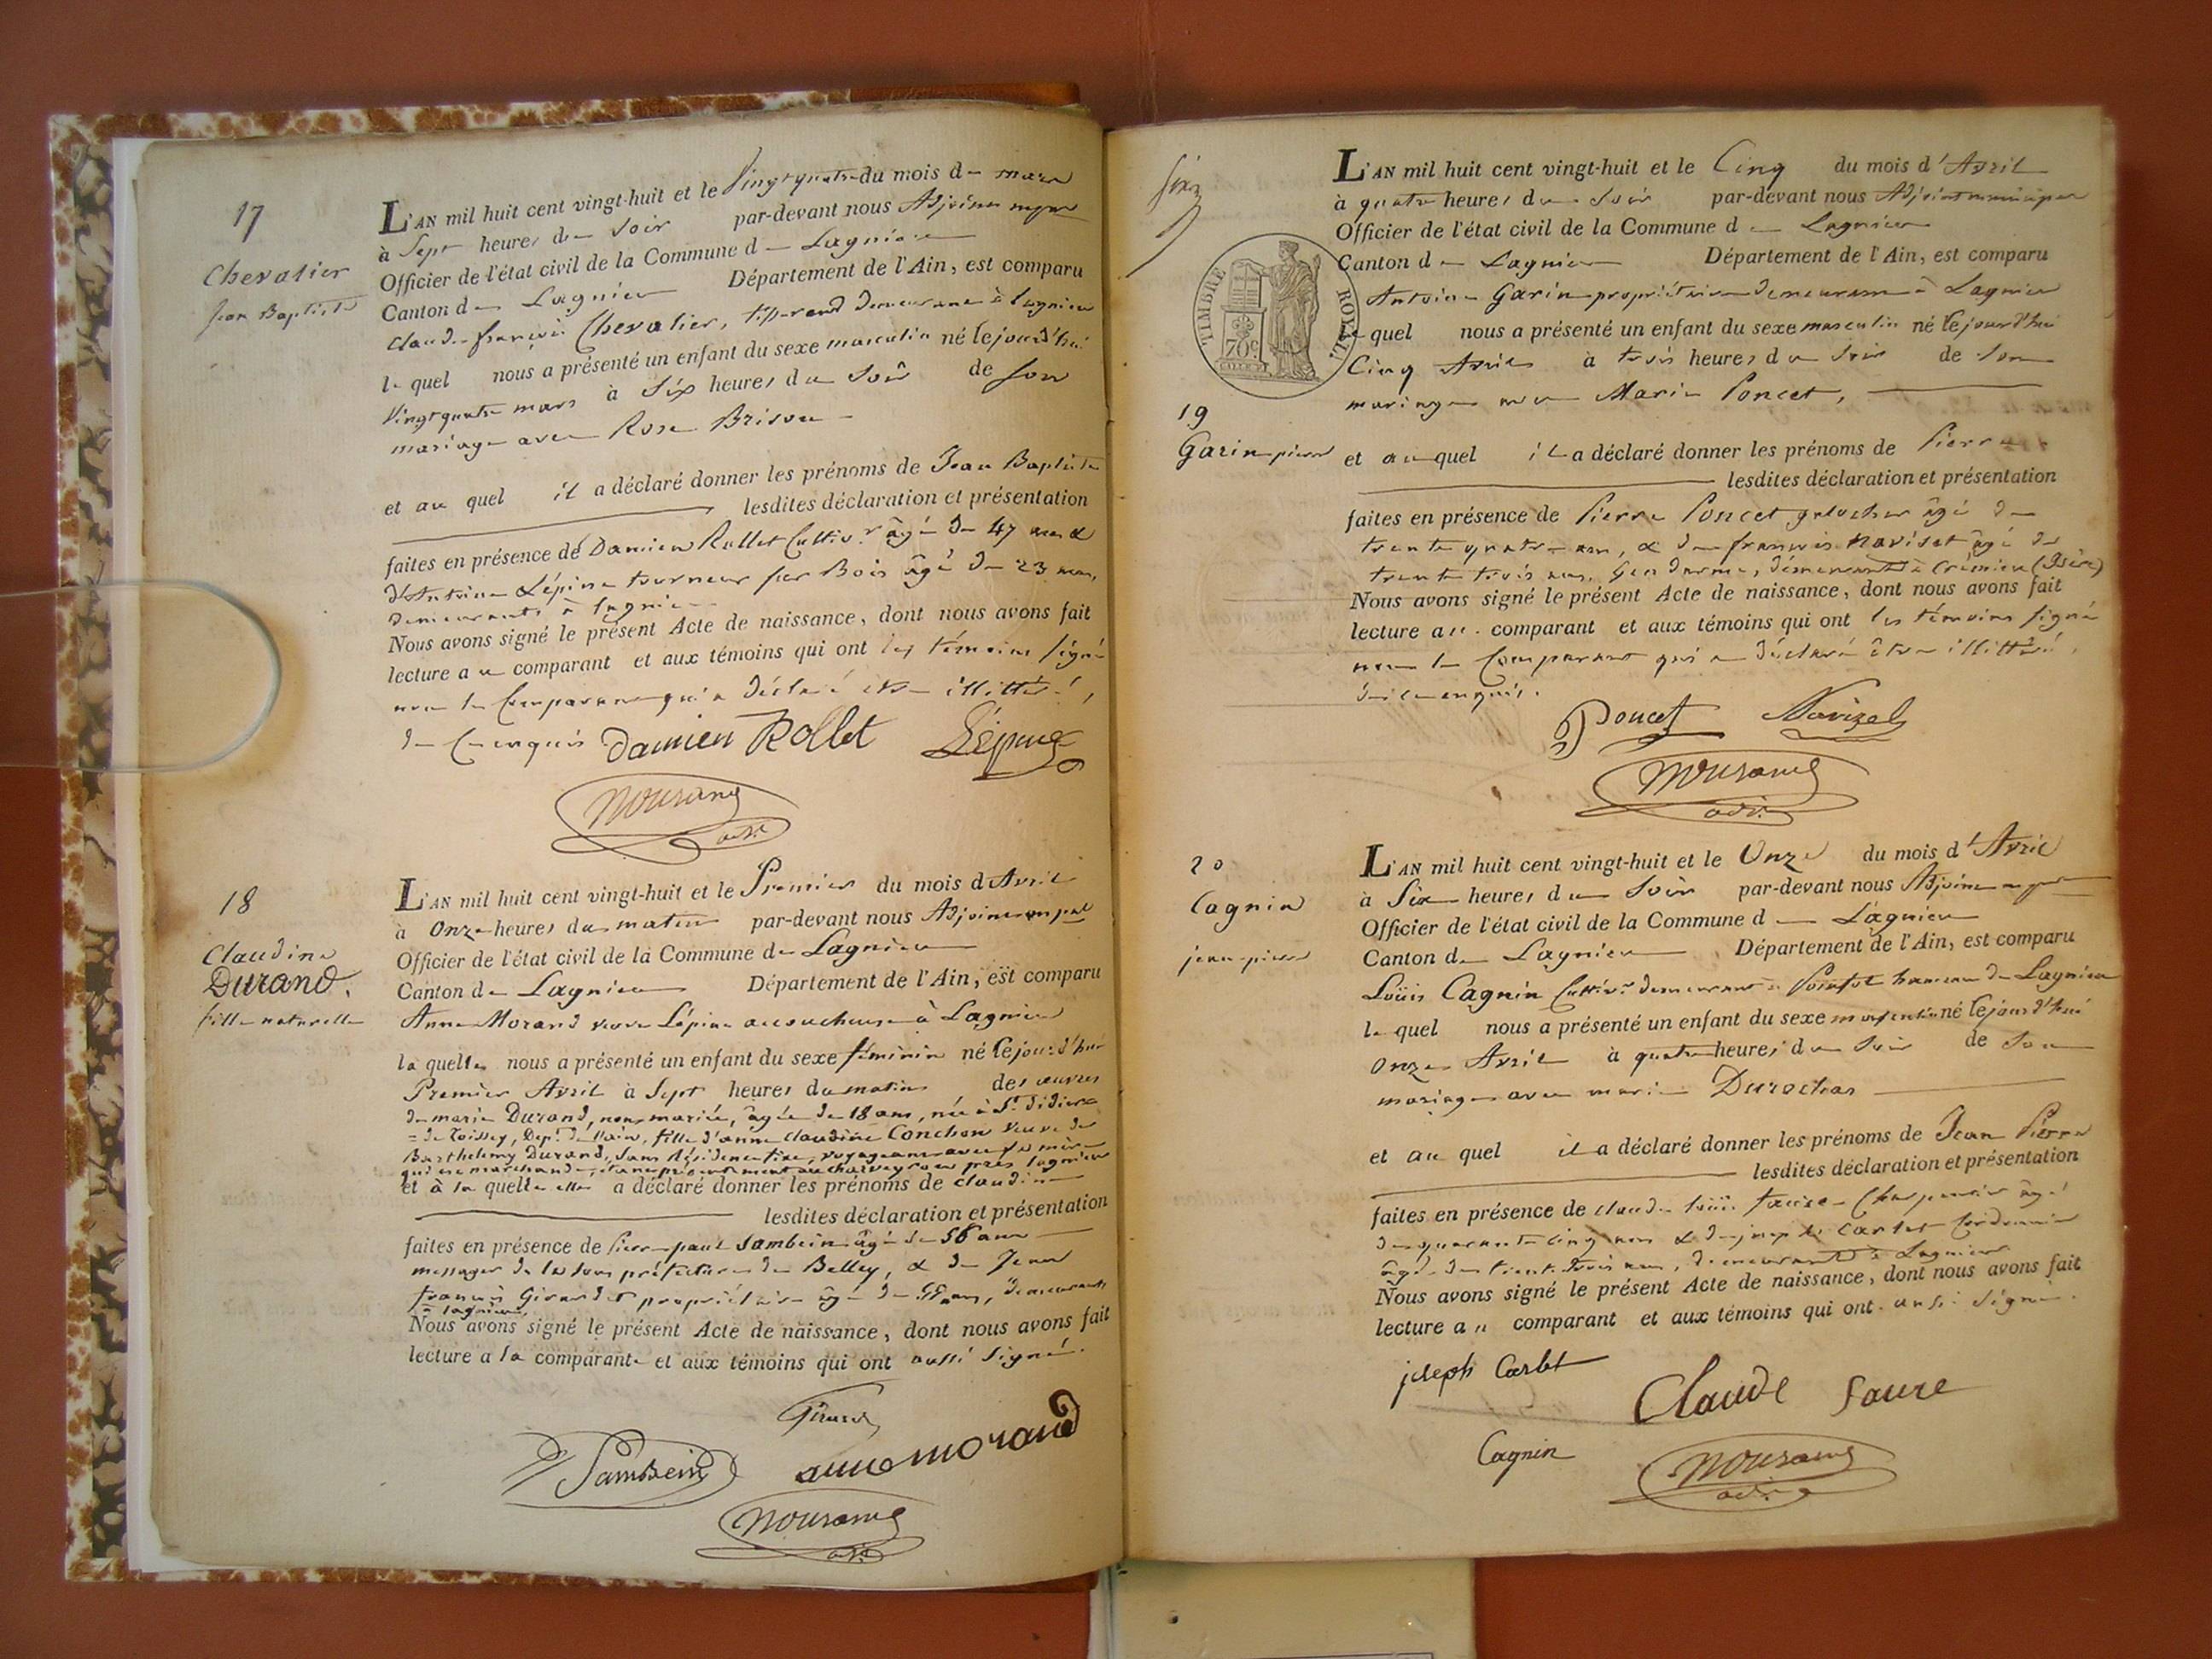 17
Chevalier
Jean Baptiste
L'AN mil huit cent vingt-huit et le Vingt quatre du mois de mars
à Sept heures du Soir par-devant nous Adjoint mpal
Officier de l'état civil de la Commune de Lagnieu
Canton de Lagnieu Département de l'Ain, est comparu
claude françois Chevalier, tisserand demeurant à Lagnieu
le quel nous a présenté un enfant du sexe masculin né lejourd'hui
Vingt quatre mars à Six heures du Soir de son
mariage avec Rose Brison
et au quel il a déclaré donner les prénoms de Jean Baptiste
lesdites déclaration et présentation
faites en présence de Damien Rollet Cultivr âgé de 47 ans &
d'Antoine Lépine tourneur sur Bois âgé de 23 ans,
demeurants à Lagnieu
Nous avons signé le présent Acte de naissance, dont nous avons fait
lecture au comparant et aux témoins qui ont les témoins signé
non le Comparant qui a déclaré être illitéré,
de ce enquis Damien Rollet Lépine
18
Claudine
Durand,
fille naturelle
L'AN mil huit cent vingt-huit et le Premier du mois d'Avril
à Onze heures du matin par-devant nous Adjoint mpal
Officier de l'état civil de la Commune de Lagnieu
Canton de Lagnieu Département de l'Ain, est comparu
Anne Morand veuve Lépine accoucheuse à Lagnieu
la quelle nous a présenté un enfant du sexe féminin né lejourd'hui
Premier Avril à Sept heures du matin des œuvres
de marie Durand, non mariée, âgée de 18 ans, née à St Didier
= de Toissey, Dept de l'ain, fille d'anne claudine Conchon veuve de
Barthelemy Durand, sans résidence fixe, voyageant avec sa mère
qui est marchande, étant présentement au charveyron près Lagnieu
et à la quelle elle a déclaré donner les prénoms de claudine
lesdites déclaration et présentation
faites en présence de Pierre paul Sambein âgé de 56 ans
messager de la sous préfecture de Belley, & de Jean
françois Girardet propriétaire âgé de ans, demeurants
à Lagnieu,
Nous avons signé le présent Acte de naissance, dont nous avons fait
lecture a la comparante et aux témoins qui ont aussi signé.
Sambein anne morand
TIMBRE ROYAL
70c
L'AN mil huit cent vingt-huit et le Cinq du mois d'Avril
à quatre heures du Soir par-devant nous Adjoint municipal
Officier de l'état civil de la Commune de Lagnieu
Canton de Lagnieu Département de l'Ain, est comparu
Antoine Garin propriétaire demeurant à Lagnieu
le quel nous a présenté un enfant du sexe masculin né lejourd'hui
Cinq Avril à trois heures du Soir de Son
mariage avec Marie Poncet,
19
Garin pierre
et au quel il a déclaré donner les prénoms de Pierre
lesdites déclaration et présentation
faites en présence de Pierre Poncet galocher âgé de
trente quatre ans, & de françois Naviset âgé de
trente trois ans, Gendarme, demeurants à Crémieu (Isère)
Nous avons signé le présent Acte de naissance, dont nous avons fait
lecture au comparant et aux témoins qui ont les témoins signé
non le Comparant qui a déclaré être illittéré,
de ce enquis.
Poncet Navizet
20
Cagnin
jean pierre
L'AN mil huit cent vingt-huit et le Onze du mois d'Avril
à Six heures du Soir par-devant nous Adjoint mpal
Officier de l'état civil de la Commune de Lagnieu
Canton de Lagnieu Département de l'Ain, est comparu
Louis Cagnin Cultivr demeurant à hameau de Lagnieu
le quel nous a présenté un enfant du sexe masculin né lejourd'hui
Onze Avril à quatre heures du Soir de Son
mariage avec marie Durochas
et au quel il a déclaré donner les prénoms de Jean Pierre
lesdites déclaration et présentation
faites en présence de claude louis faure Charpentier âgé
de quarante cinq ans & de joseph Carlet Cordonnier
âgé de trente trois ans, demeurants à Lagnieu
Nous avons signé le présent Acte de naissance, dont nous avons fait
lecture au comparant et aux témoins qui ont aussi signé.
joseph Carlet
Claude faure
Cagnin